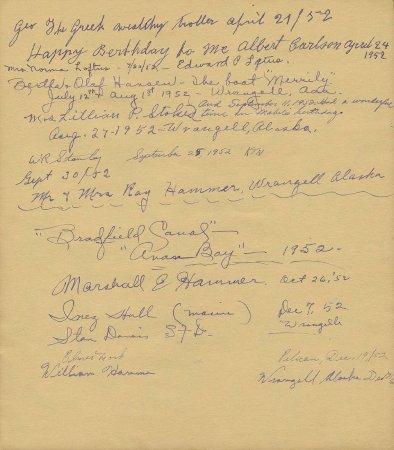 Geo The Greek wealthy troller april 21/52
Happy Berthday to Me Albert Carlson April 24
1952
Mrs Norma Loftus - 7/20/52 - Edward P Loftus.
Bertha & Olaf Hansen - The boat "Merrily"
July 12th & Aug 1st 1952 - Wrangell, Ala.
And September 11, 1952 had a wonderful
Mrs Lillian P. Stokes time on Mabels birthday
Aug. 27-1952-Wrangell, Alaska.
W.R. Stanley September 25 1952 KTN
Sept 30/52
Mr & Mrs Ray Hammer, Wrangell Alaska
"Bradfield Canal"-
"Anan Bay" - 1952-
Marshall E Hammer. Oct 26, '52
Inez Hall (maine) Dec 7, 52
Stan Davis Wrangell
Pelican, Dec. 19/52
William Wrangell Alaska Dec